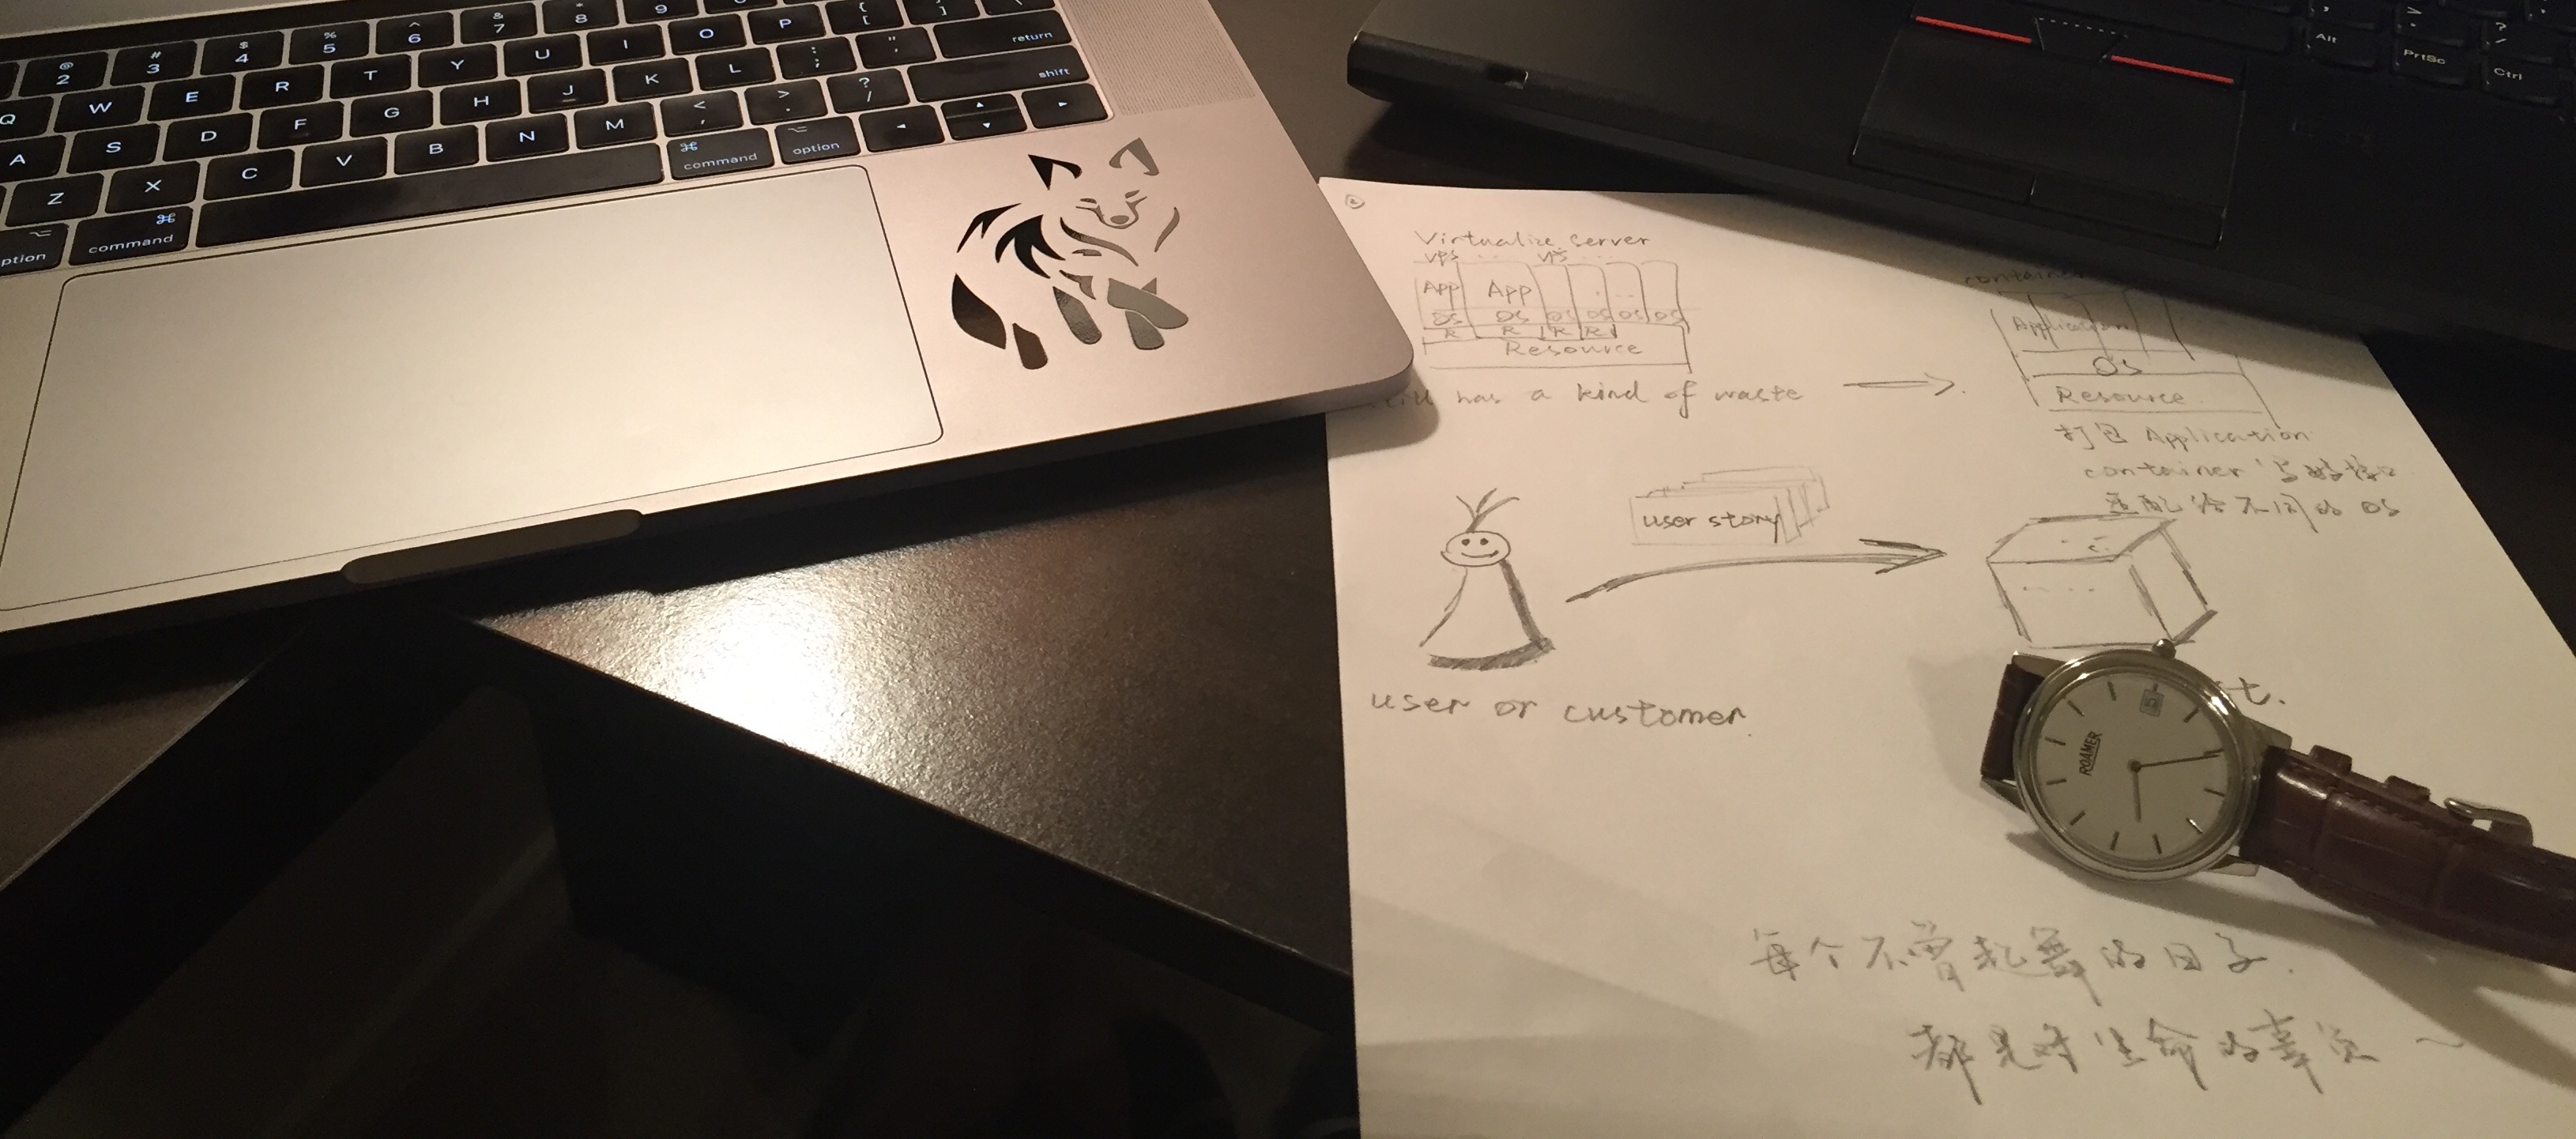 @ 2 # 3 $ 4 % 5 ^ 6 & 7 * 8 9
Q W E R T Y U I O P { [ } ] \
return
A S D F G H J K L : ; " '
shift
Z X C V B N M < , > . ? /
option command command option
Alt PrtSc Ctrl
②
Virtualize Server
VPS ... VPS ...
App App
OS OS OS OS OS OS
R R R R
Resource
has a kind of waste
container
Application
OS
Resource
打包 Application
container
适配给不同的 OS
user story
user or customer
t.
ROAMER
每个不曾起舞的日子.
都是对生命的辜负~